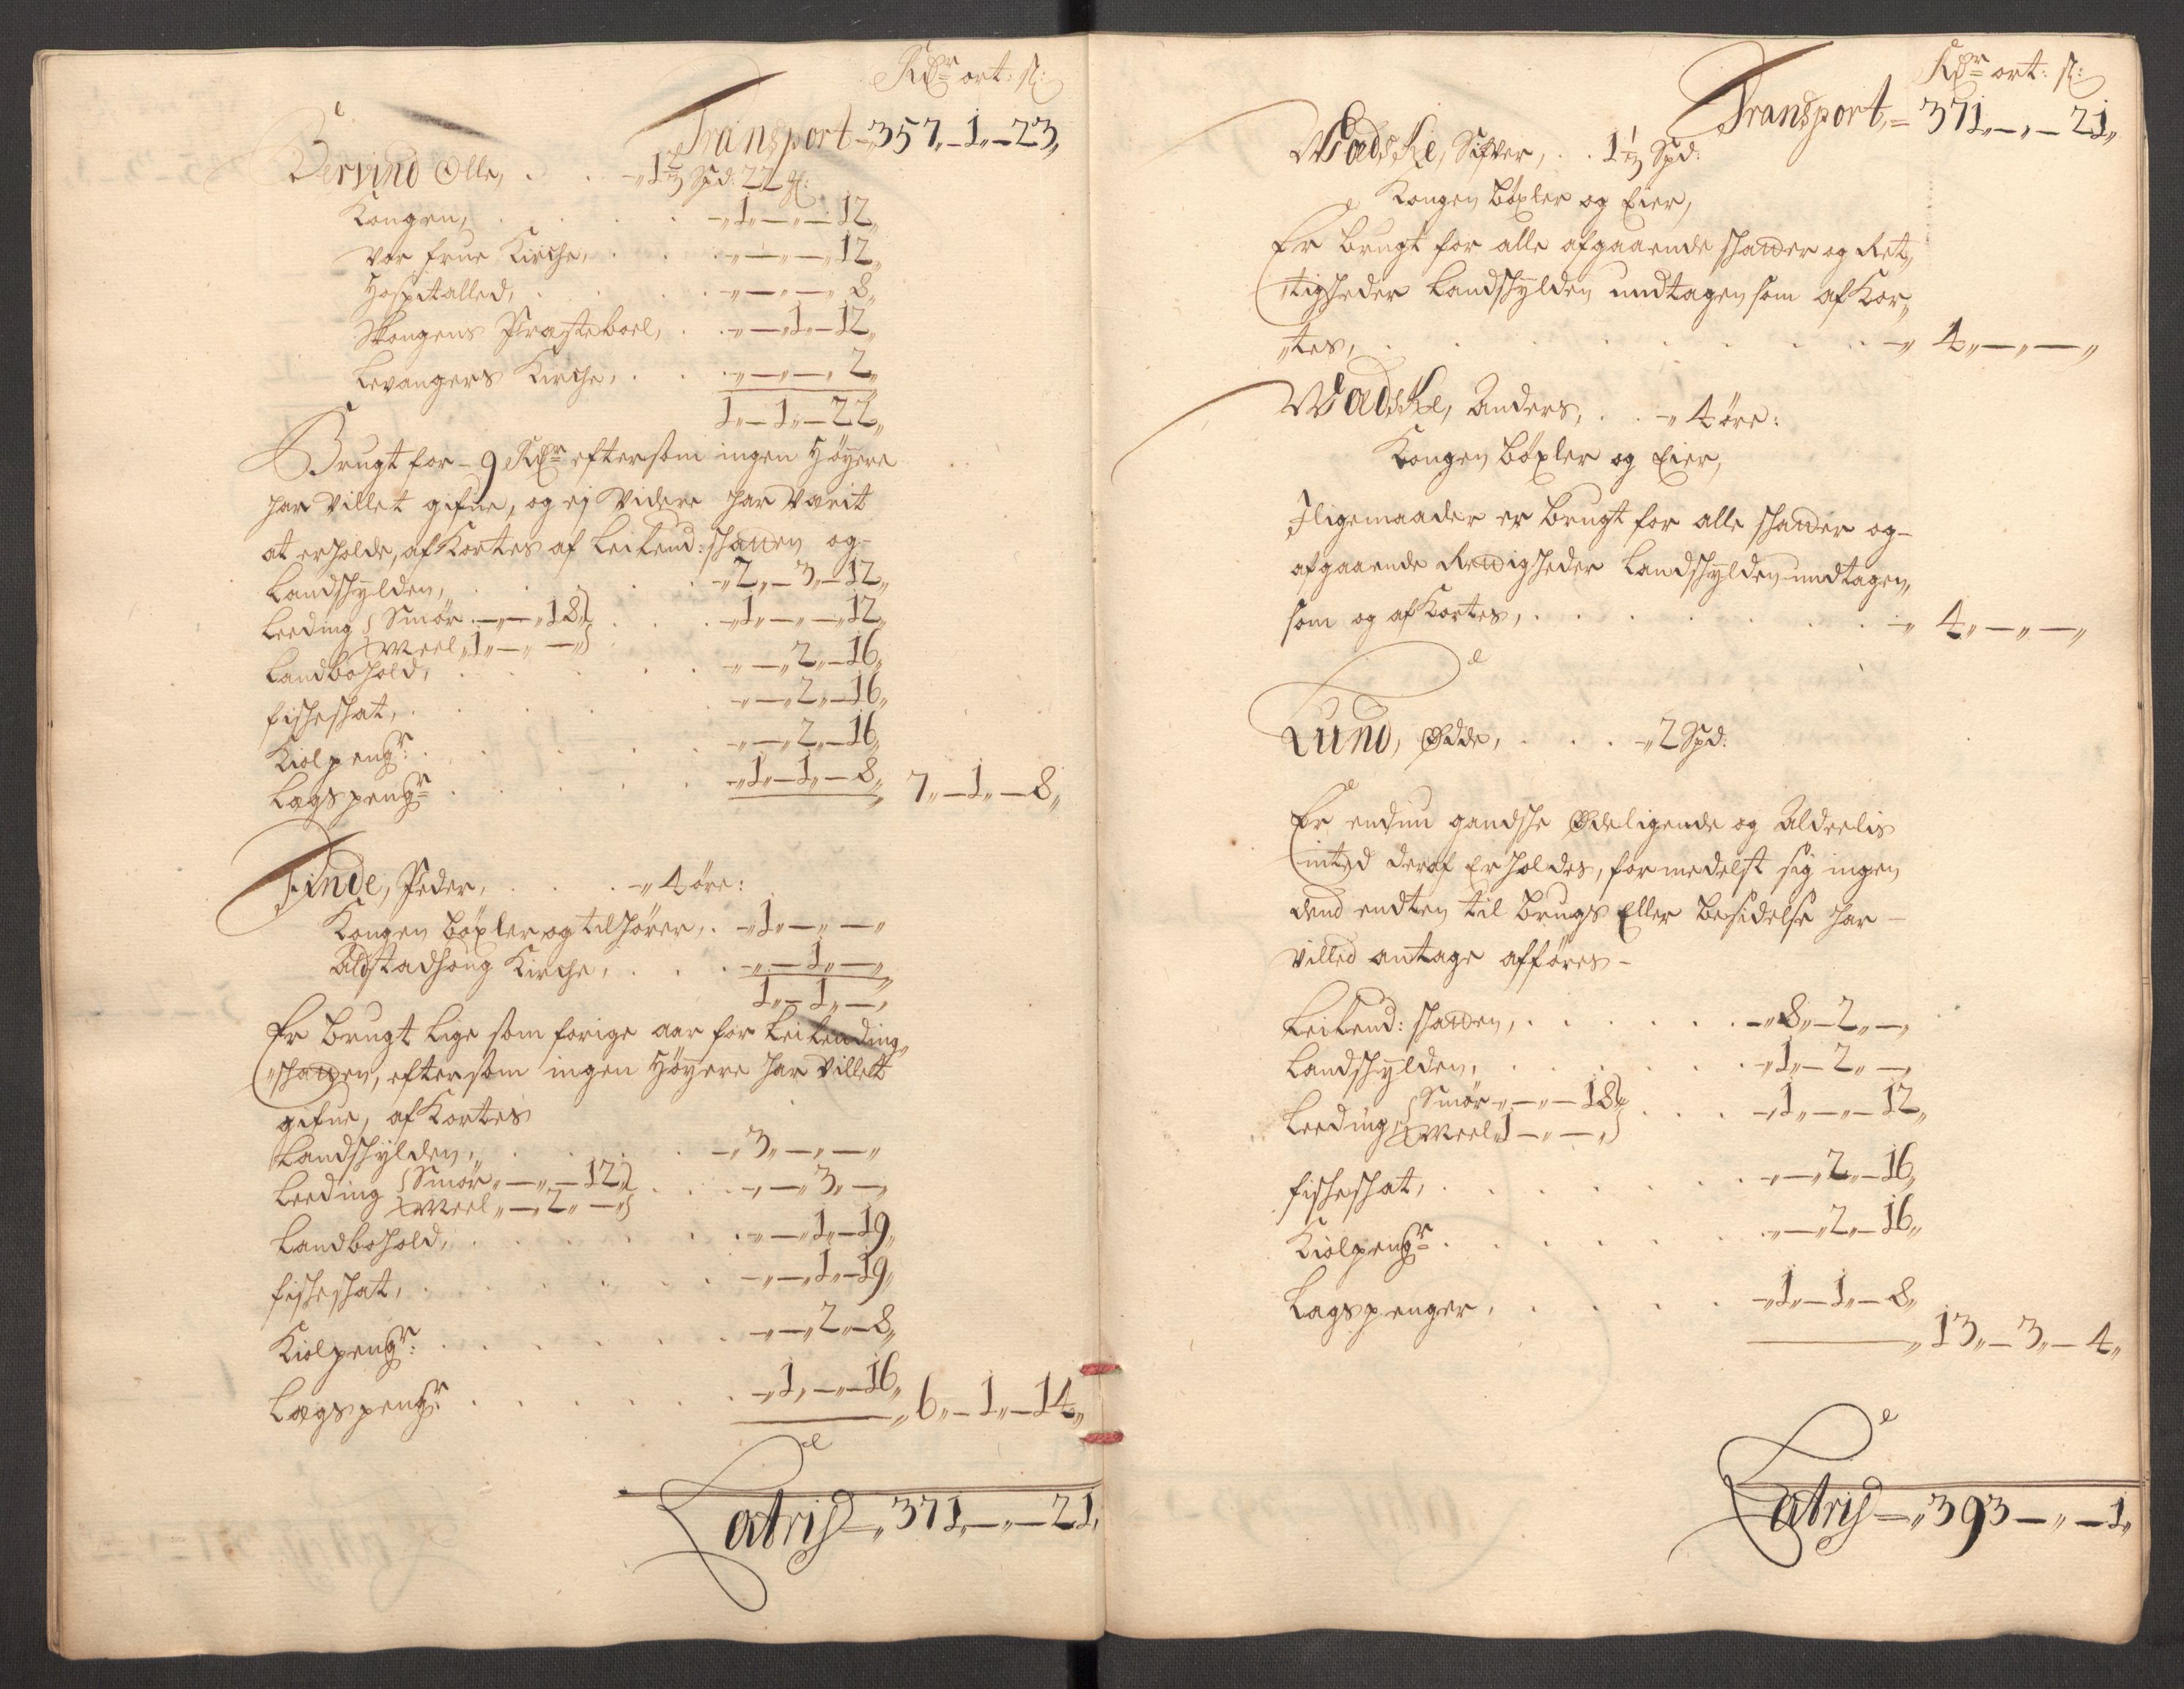 Rdr ort: s:
Transport - 357,,-1,,-23,,
Bervind Olle, . . -,,1 2/3 Spd: 22 ℔:
Kongen, . . . . -,,1,,-,,-12,,
Vor frue Kirche, . . . -,,-,,-,,12,,
Hospitalled, . . . -,,-,,-,,8,,
Skongens Præsteboel, . . -,,-,,1,,-12,,
Levangers Kirche, . . . -,,-,,-,,2,,
1,,-1,,-22,,
Brugt for - 9 Rdr eftersom ingen Höyere
har villet gifue, og ej videre har värit
at erholde, af Kortes af Leilend: schatten og-
Landschylden, . . . . -,,2,,-3,,-12,,
Leeding { Smör -,,-,,18,, } . . . -,,1,,-,,-12,,
{ Meel ,,1,,-,,-,, }
Landbohold, . . . . . -,,-,,2,,-16,,
fischeschat, . . . . . -,,-,,2,,-16,,
Kiölpengr: . . . . . -,,-,,2,,-16,,
Lagspengr . . . . . -,,1,,-1,,-8,, 7,,-1,,-8,,
Finde, Peder, . . . . -,,4 öre:
Kongen böxler og tilhörer, . -,,1,,-,,-,,
Alstadhoug Kirche, . . . -,,-,,1,,-,,
1,,-1,,-,,
Er brugt lige som forige aar for Leilending,,
,,schatten, eftersom ingen Höyere har villet
gifue, af Kortes
Landschylden, . . . . -,,3,,-,,-,,
Leeding { Smör ,,-,,-12,, } . . . -,,-,,3,,-,,
{ Meel ,,-,,2,,-,, }
Landbohold, . . . . . -,,-,,1,,-19,,
fischeschat, . . . . . -,,-,,1,,-19,,
Kiolpengr: . . . . . -,,-,,2,,-8,,
Lagspengr: . . . . . -,,1,,-,,-16,, 6,,-1,,-14,,
Latris = ,,371,,-,,-21,,
Rdr ort: s:
Transport,, = 371,,-,,-21,,
Wadske, Sifver, . . 1 1/3 Spd:
Kongen böxler og Eier,
Er brugt for alle afgaaende schatter og Ret,,
,,tigheder Landschylden undtagen som af Kor,,
,,tes, . . . . . . . . -,, 4,,-,,-,,
Wadske, Anders, . . -,,4 öre:
Kongen böxler og Eier,
Jligemaader er brugt for alle schatter og-
afgaaende Rettigheder Landschylden undtagen,
som og af Kortes, . . . . . . -,, 4,,-,,-,,
Lund, Øde, . . . . -,,2 Spd:
Er endnu gandsche Ødeligende og Alderlis
inted deraf Erholdes, formedelst sig ingen
dend endten til brugs Eller besidelse har -
villed antage afföres -
Leilend: schatten, . . . . . -,,8,,-2,,-,,
Landschylden, . . . . . -,,1,,-2,,-,,
Leeding { Smör -,,-,,-18,, } . . . -,,1,,-,,-12,,
{ Meel ,,1-,,-,, }
fischeschat, . . . . . . -,,-,,2,,-16,,
Kiolpengr . . . . . . -,,-,,2,,-16,,
Lagspenger, . . . . . -,,1,,-1,,-8,,
,,13,,-3,,-4,,
Latris = ,,393-,,-1,,